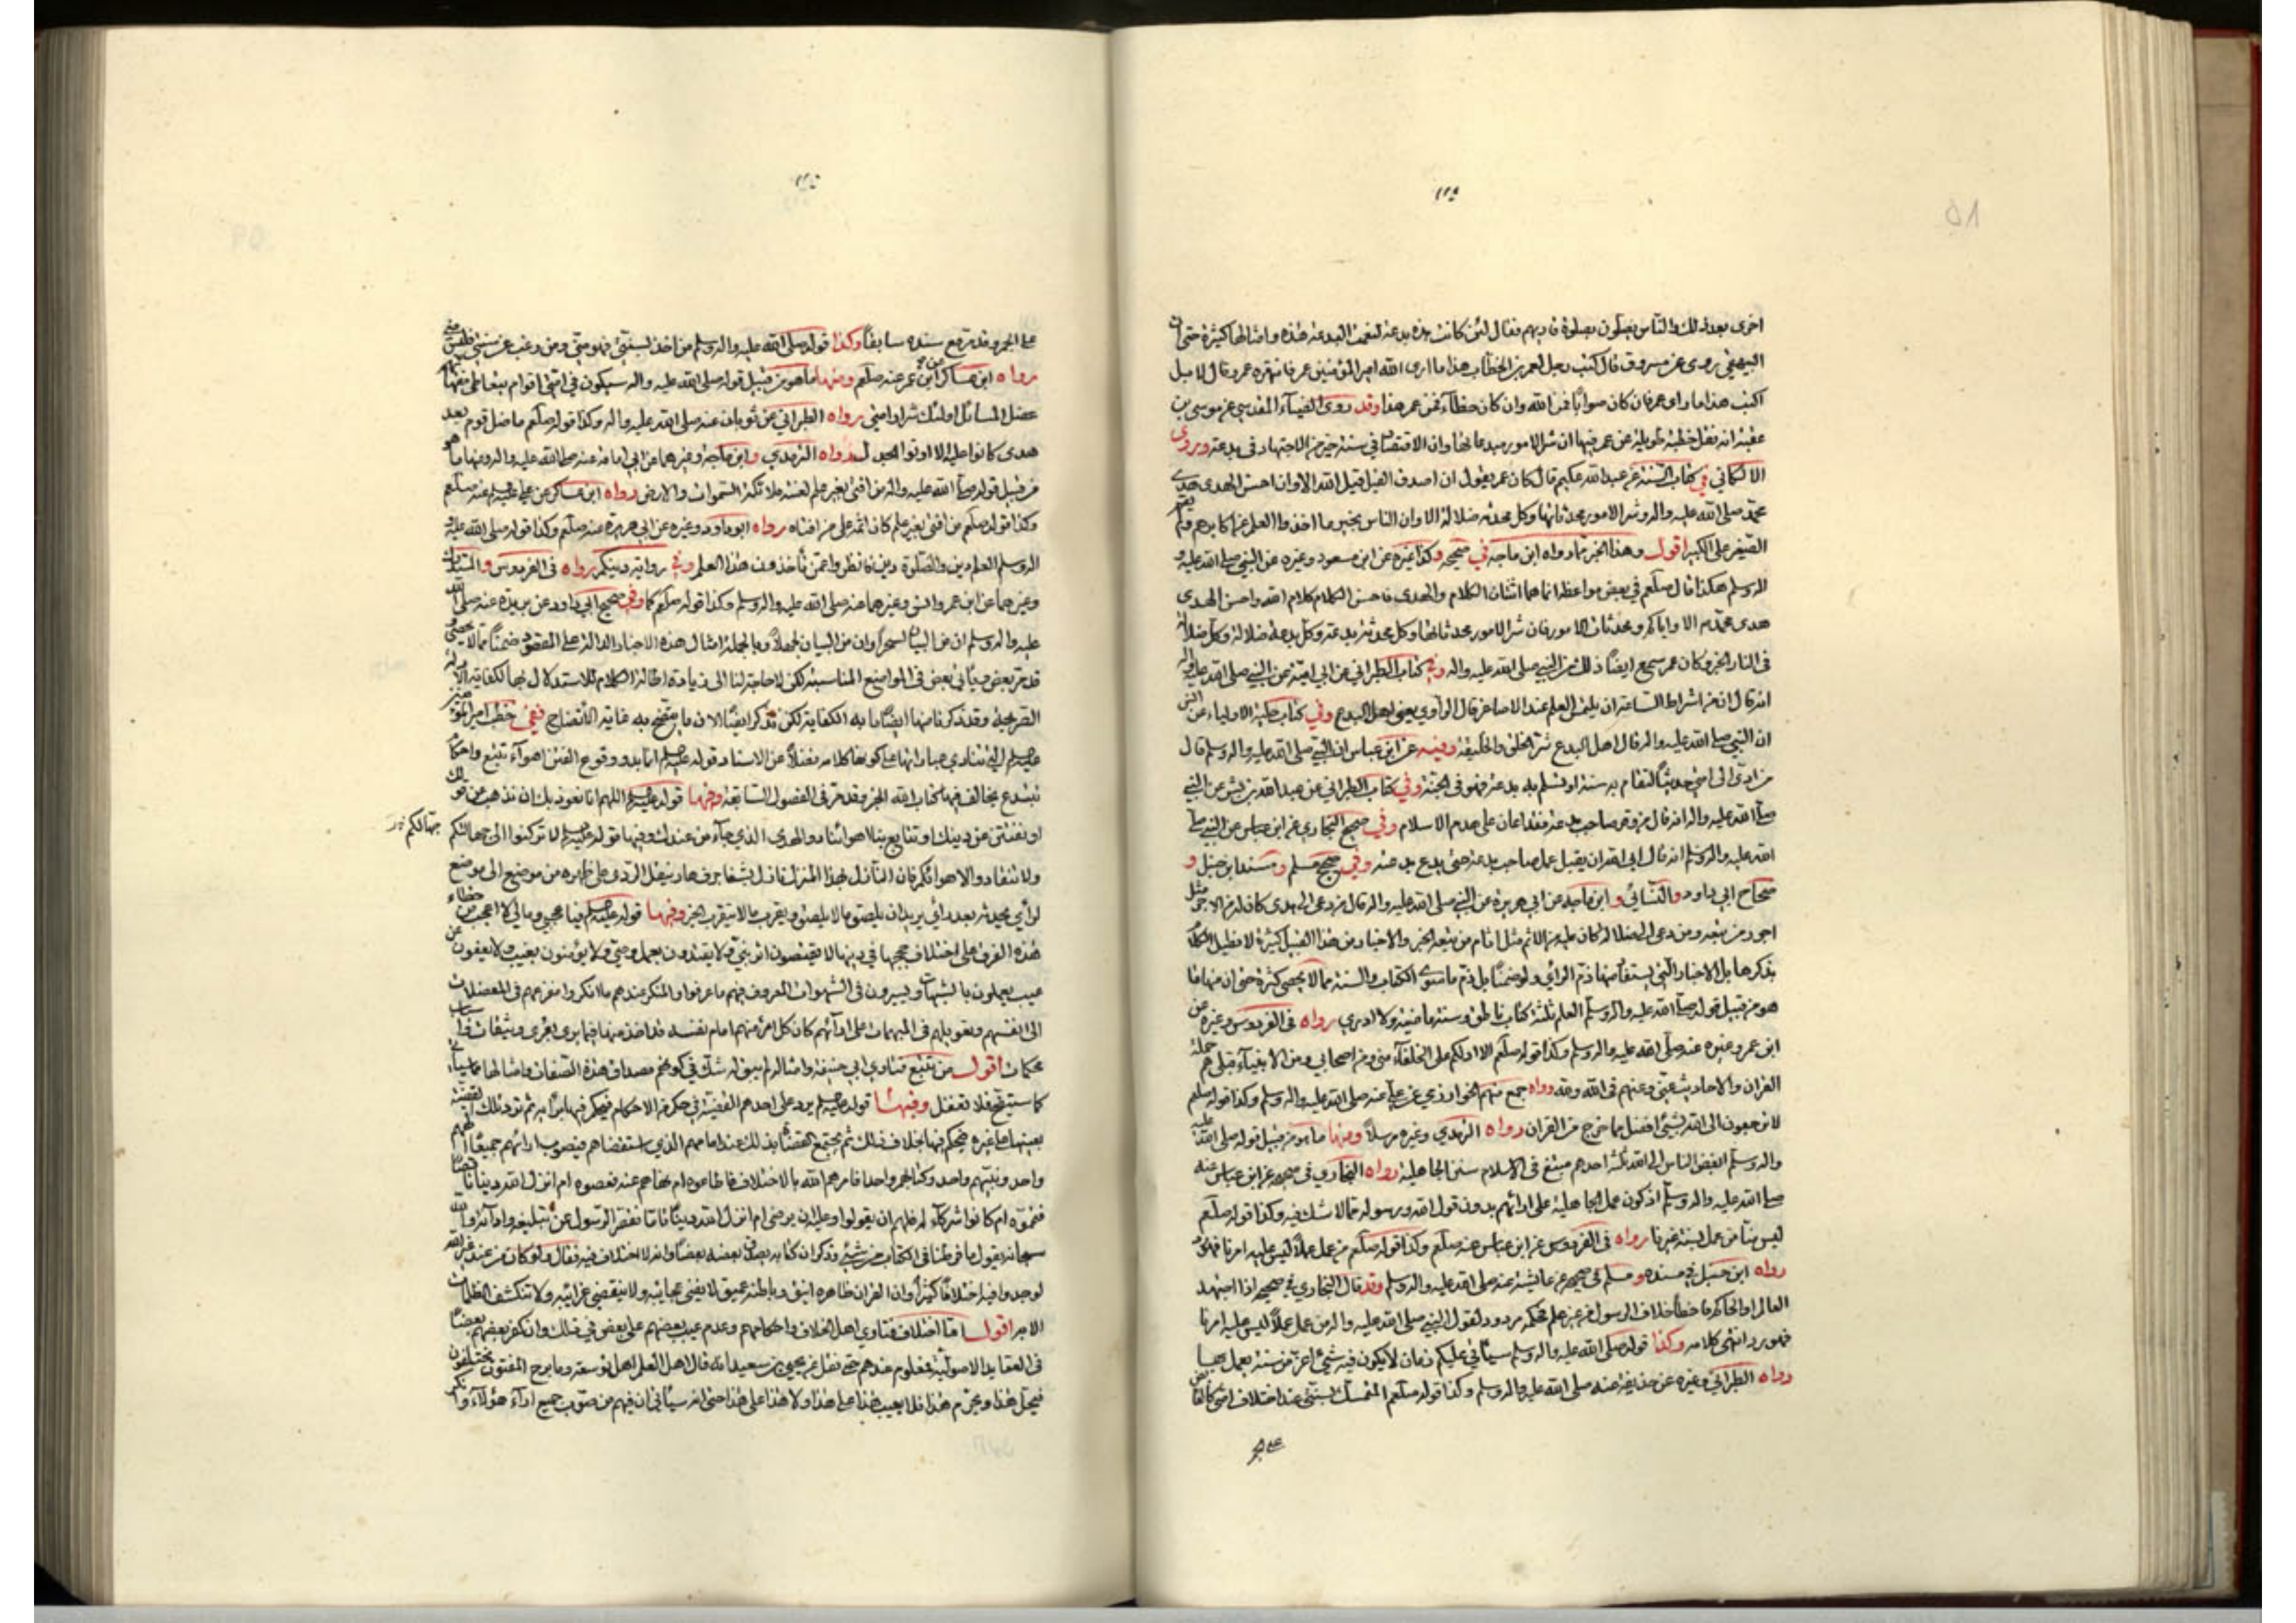 اخرى بعد ذلك والناس يصلون بصلوة قاريهم فقال لئن كانت هذه بدعة لنعمت البدعة هذه وامثالها كثيرة حتى ان
البيهقي روى عن مسروق قال كتب رجل لعمر بن الخطاب هذا ما ارى الله امير المؤمنين عمر فانتهره عمر وقال لا بل
اكتب هذا ما راى عمر فان كان صوابا فمن الله وان كان خطاء فمن عمر هذا وقد روى الضياء المقدسي عن موسى بن
عقبة انه نقل خطبة طويلة عن عمر فيها ان شر الامور مبدعاتها وان الاقتصاد في سنة خير من الاجتهاد في بدعة وروى
الالكائي في كتاب السنة عن عبدالله عكيم قال كان عمر يقول ان اصدق القيل قيل الله الا وان احسن الهدى هدى
محمد صلى الله عليه واله وشر الامور محدثاتها وكل محدثة ضلالة الا وان الناس بخير ما اخذوا العلم عن اكابرهم ولم يقم
الصغير على الكبير اقول وهذا الخبر مما رواه ابن ماجه في صحيحه وكذا غيره عن ابن مسعود وغيره عن النبي صلى الله عليه و
اله وسلم هكذا قال صلعم في بعض مواعظه انما هما اثنتان الكلام والهدى فاحسن الكلام كلام الله واحسن الهدى
هدى محمد الا واياكم ومحدثات الامور فان شر الامور محدثاتها وكل محدثة بدعة وكل بدعة ضلالة وكل ضلالة
في النار الخبر وكان عمر سمع ايضا ذلك من النبي صلى الله عليه واله وفي كتاب الطبراني عن ابي امية عن النبي صلى الله عليه واله
انه قال ان من اشراط الساعة ان يلتمس العلم عند الاصاغر قال الراوي يعني اهل البدع وفي كتاب حلية الاولياء عن انس
ان النبي صلى الله عليه واله قال اهل البدع شر الخلق والخليقة وفيه عن ابن عباس ان النبي صلى الله عليه واله وسلم قال
من ادى الى امتي حديثا لتقام به سنة او تثلم به بدعة فهو في الجنة وفي كتاب الطبراني عن عبد الله بن بشر عن النبي
صلى الله عليه واله انه قال من وقر صاحب بدعة فقد اعان على هدم الاسلام وفي صحيح البخاري عن ابن عباس عن النبي صلى
الله عليه واله وسلم انه قال ابى الله ان يقبل عمل صاحب بدعة حتى يدع بدعته وفي صحيح مسلم ومسند ابن حنبل و
صحاح ابي داود والنسائي وابن ماجه عن ابي هريرة عن النبي صلى الله عليه واله قال من دعى الى هدى كان له من الاجر مثل
اجور من تبعه ومن دعى الى ضلالة كان عليه من الاثم مثل اثام من تبعه الخبر والاخبار من هذا القبيل كثيرة لا نطيل الكلام
بذكرها بل الاخبار التي يستفاد منها ذم الراي ولو ضمنا بل ذم ما سوى الكتاب والسنة مما لا يحصى كثرة حتى ان منها ما
هو من قبيل قوله صلى الله عليه واله وسلم العلم ثلثة كتاب ناطق وسنة ماضية ولا ادري رواه في الفردوس وغيره عن
ابن عمر وغيره عنه صلى الله عليه واله وسلم وكذا قوله صلعم الا ادلكم على الخلفاء مني ومن اصحابي ومن الانبياء قبلي هم حملة
القران والاحاديث عني وعنهم في الله ولله رواه جمع منهم الخوارزمي عن علي عنه صلى الله عليه واله وسلم وكذا قوله صلعم
لا ترجعون الى الله بشئ افضل مما خرج من القران رواه الترمذي وغيره مرسلا ومنها ما هو من قبيل قوله صلى الله عليه
واله وسلم ابغض الناس الى الله ثلثة احدهم مبتغ في الاسلام سنن الجاهلية رواه البخاري في صحيحه عن ابن عباس عنه
صلى الله عليه واله وسلم اذ كون عمل الجاهلية على ارائهم بدون قول الله ورسوله مما لا شك فيه وكذا قوله صلعم
ليس منا من عمل بسنة غيرنا رواه في الفردوس عن ابن عباس عنه صلعم وكذا قوله صلعم من عمل عملا ليس عليه امرنا فهو رد
رواه ابن حنبل في مسنده ومسلم في صحيحه عن عايشة عنه صلى الله عليه واله وسلم وقد قال البخاري في صحيحه اذا اجتهد
العالم او الحاكم فاخطأ خلاف الرسول من غير علم فحكمه مردود لقول النبي صلى الله عليه واله من عمل عملا ليس عليه امرنا
فهو رد انتهى كلامه وكذا قوله صلى الله عليه واله وسلم سياتي عليكم زمان لا يكون فيه شئ اعز من سنة يعمل بها
رواه الطبراني وغيره عن حذيفة عنه صلى الله عليه واله وسلم وكذا قوله صلعم المتمسك بسنتي عند اختلاف امتي كالقابض
على الجمر
على الجمر وقد مر مع سنده سابقا وكذا قوله صلى الله عليه واله وسلم من اخذ بسنتي فهو مني ومن رغب عن سنتي فليس مني
رواه ابن عساكر عن ابن عمر عنه صلعم ومنها ما هو من قبيل قوله صلى الله عليه واله سيكون في امتي اقوام يتعاطى فقهاؤهم
عضل المسائل اولئك شرار امتي رواه الطبراني عن ثوبان عنه صلى الله عليه واله وكذا قوله صلعم ما ضل قوم بعد
هدى كانوا عليه الا اوتوا الجدل رواه الترمذي وابن ماجة وغيرهما عن ابي امامة عنه صلى الله عليه واله ومنها ما هو
من قبيل قوله صلى الله عليه واله من افتى بغير علم لعنته ملائكة السموات والارض رواه ابن عساكر عن علي عليه السلام عنه صلعم
وكذا قوله صلعم من افتي بغير علم كان اثمه على من افتاه رواه ابو داود وغيره عن ابي هريرة عنه صلعم وكذا قوله صلى الله عليه و
اله وسلم العلم دين والصلوة دين فانظروا عمن تأخذون هذا العلم وفي رواية دينكم رواه في الفردوس والمستدرك
وغيرهما عن ابن عمر وانس وغيرهما عنه صلى الله عليه واله وسلم وكذا قوله صلعم كما وفي صحيح ابي داود عن بريدة عنه صلى الله
عليه واله وسلم ان من البيان لسحرا وان من البيان لجهلا وبالجملة امثال هذه الاخبار الدالة على المقصود ضمنا مما لا يحصى و
قد مر بعض وياتي بعض في المواضع المناسبة لكن لا حاجة لنا الى زيادة اطالة الكلام للاستدلال بها لكفاية الادلة
الصريحة وقد ذكرنا منها ايضا ما به الكفاية لكن نذكر ايضا الان ما يتضح به غاية الاتضاح ففي خطب امير المؤمنين
عليه السلام التي تنادي عباراتها على كونها كلامه فضلا عن الاسناد قوله عليه السلام انما بدو وقوع الفتن اهواء تتبع واحكام
تبتدع يخالف فيها كتاب الله الخبر وقد مر في الفصول السابقة وفيها قوله عليه السلام اللهم انا نعوذ بك ان نذهب عن قولك
او نفتتن عن دينك او تتابع بنا اهوائنا دون الهدى الذي جاء من عندك وفيها قوله عليه السلام لا تركنوا الى جهالتكم
جهالتكم
ولا تنقادوا لاهوائكم فان النازل بهذا المنزل نازل بشفا جرف هار ينقل الردى على ظهره من موضع الى موضع
لرأي يحدثه بعد رأي يريد ان يلصق ما لا يلتصق ويقرب ما لا يتقرب الخبر وفيها قوله عليه السلام فيا عجبي ومالي لا اعجب من خطاء
هذه الفرق على اختلاف حججها في دينها لا يقتصون اثر نبي ولا يقتدون بعمل وصي ولا يؤمنون بغيب ولا يعفون عن
عيب يعملون بالشبهات ويسيرون في الشهوات المعروف فيهم ما عرفوا والمنكر عندهم ما انكروا مفزعهم في المعضلات
الى انفسهم وتعويلهم في المبهمات على ارائهم كان كل امرء منهم امام نفسه قد اخذ منها فيما يرى بعرى وثيقات واسباب
محكمات اقول من تتبع فتاوي ابي حنيفة وامثاله لم يبق له شك في كونهم مصداق هذه الصفات وامثالها
كما سيتضح فلا تغفل وفيها قوله عليه السلام يرد على احدهم القضية في حكم من الاحكام فيحكم فيها برأيه ثم ترد تلك القضية
بعينها على غيره فيحكم فيها بخلاف ذلك ثم يجتمع القضاة بذلك عند امامهم الذي استقضاهم فيصوب ارائهم جميعا والههم
واحد ونبيهم واحد وكتابهم واحد افامرهم الله بالاختلاف فاطاعوه ام نهاهم عنه فعصوه ام انزل الله دينا ناقصا
فتمموه ام كانوا شركاء له فلهم ان يقولوا وعليه ان يرضى ام انزل الله دينا تاما فقصر الرسول عن تبليغه وادائه والله
سبحانه يقول ما فرطنا في الكتاب من شئ وذكر ان كتابه يصدق بعضه بعضا وانه لا اختلاف فيه فقال ولو كان من عند غير الله
لوجدوا فيه اختلافا كثيرا وان القران ظاهره انيق وباطنه عميق لا يفنى عجايبه ولا ينقضي غرائبه ولا تنكشف الظلمات
الا به اقول اما اختلاف فتاوي اهل الخلاف واحكامهم وعدم عيب بعضهم على بعض في ذلك وان كفر بعضهم بعضا
في العقايد الاصولية فمعلوم عندهم حتى نقل عن يحيى بن سعيد انه قال اهل العلم اهل توسعة وما برح المفتون يختلفون
فيحل هذا ويحرم هذا فلا يعيب هذا على هذا ولا هذا على هذا حتى انه سياتي ان فيهم من صوب جميع اراء هؤلاء